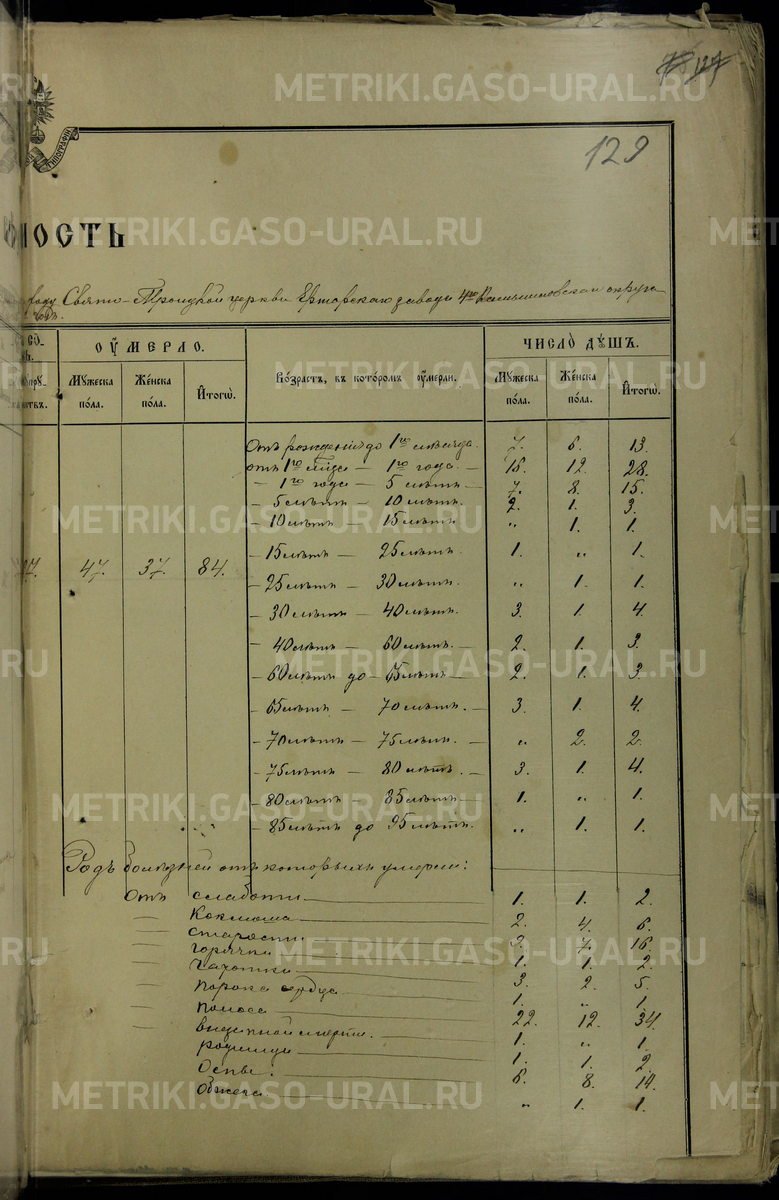 129
ность
Свято-Троицкой церкви Ертарскаго завода 4го Камышловскаго округа
ОУМЕРЛО.
ЧИСЛО ДꙊШЪ.
Мꙋжеска по́ла.
Же́нска по́ла.
И҆тогѡ̀.
Во́зрастъ, въ кото́ромъ оу҆мерли.
Мꙋжеска по́ла.
Же́нска по́ла.
И҆тогѡ̀.
Отъ рожденія до 1го мѣсяца. 7. 6. 13.
отъ 1го м-ца — 1го года. — 16. 12. 28.
— 1го года — 5 лѣтъ — 7. 8. 15.
— 5 лѣтъ — 10 лѣтъ. 2. 1. 3.
— 10 лѣтъ — 15 лѣтъ „ 1. 1.
— 15 лѣтъ — 25 лѣтъ. 1. „ 1.
47. 37. 84.
— 25 лѣтъ — 30 лѣтъ. „ 1. 1.
— 30 лѣтъ — 40 лѣтъ. 3. 1. 4.
— 40 лѣтъ — 60 лѣтъ. 2. 1. 3.
— 60 лѣтъ до — 65 лѣтъ — 2. 1. 3.
— 65 лѣтъ — 70 лѣтъ. 3. 1. 4.
— 70 лѣтъ — 75 лѣтъ. — „ 2. 2.
— 75 лѣтъ — 80 лѣтъ. — 3. 1. 4.
— 80 лѣтъ — 85 лѣтъ 1. „ 1.
— 85 лѣтъ до 95 лѣтъ. „ 1. 1.
Родъ болѣзней отъ которыхъ умерли:
Отъ слабости 1. 1. 2.
— Коклюша 2. 4. 6.
— старости 9. 7. 16.
горячки 1. 1. 2.
— чахотки 3. 2. 5.
— порока сердца 1. „ 1.
— поноса 22. 12. 34.
— внезапной смерти. 1. „ 1.
родимца 1. 1. 2.
Оспы: 6. 8. 14.
обжога „ 1. 1.
METRIKI.GASO-URAL.RU